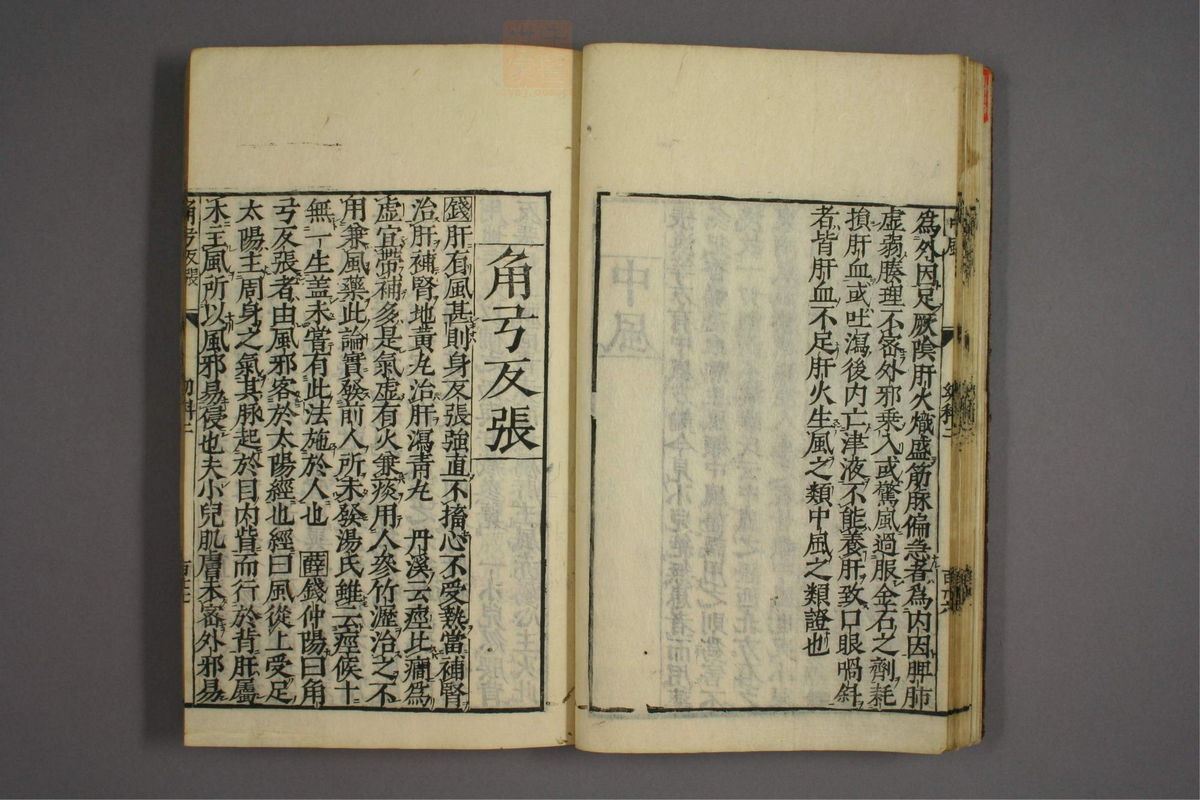 為外因足厥陰肝火熾盛筋脉偏急者為内因脾肺
虚弱腠理不密外邪乗入或驚風過服金石之劑耗
損肝血或吐瀉後内亡津液不能養肝致口眼喎斜
者皆肝血不足肝火生風之類中風之類證也
角弓反張
錢肝有風甚則身反張強直不搐心不受熱當補腎
治肝補腎地黃丸治肝瀉青丸 丹溪云痙比癎為
虚宜帶補多是氣虚有火兼痰用人參竹瀝治之不
用兼風藥此論實發前人所未發湯氏雖云痙候十
無一生盖未嘗有此法施於人也 薛錢仲陽曰角
弓反張者由風邪客於太陽經也經曰風從上受足
太陽主周身之氣其脉起於目内眥而行於背肝屬
木主風所以風邪易侵也夫小兒肌膚未密外邪易
角弓反張 幼科二